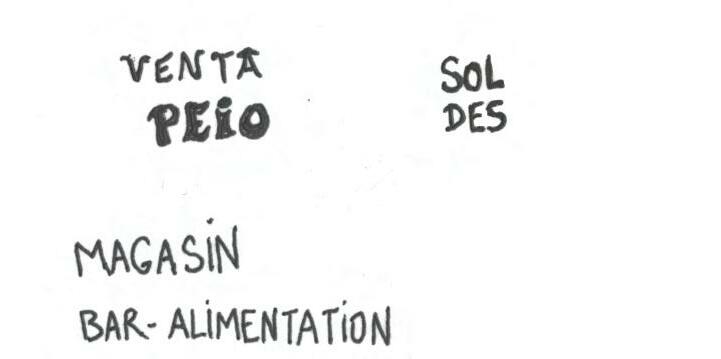 VENTA
PEiO
SOL
DES
MAGASiN
BAR-ALiMENTATiON